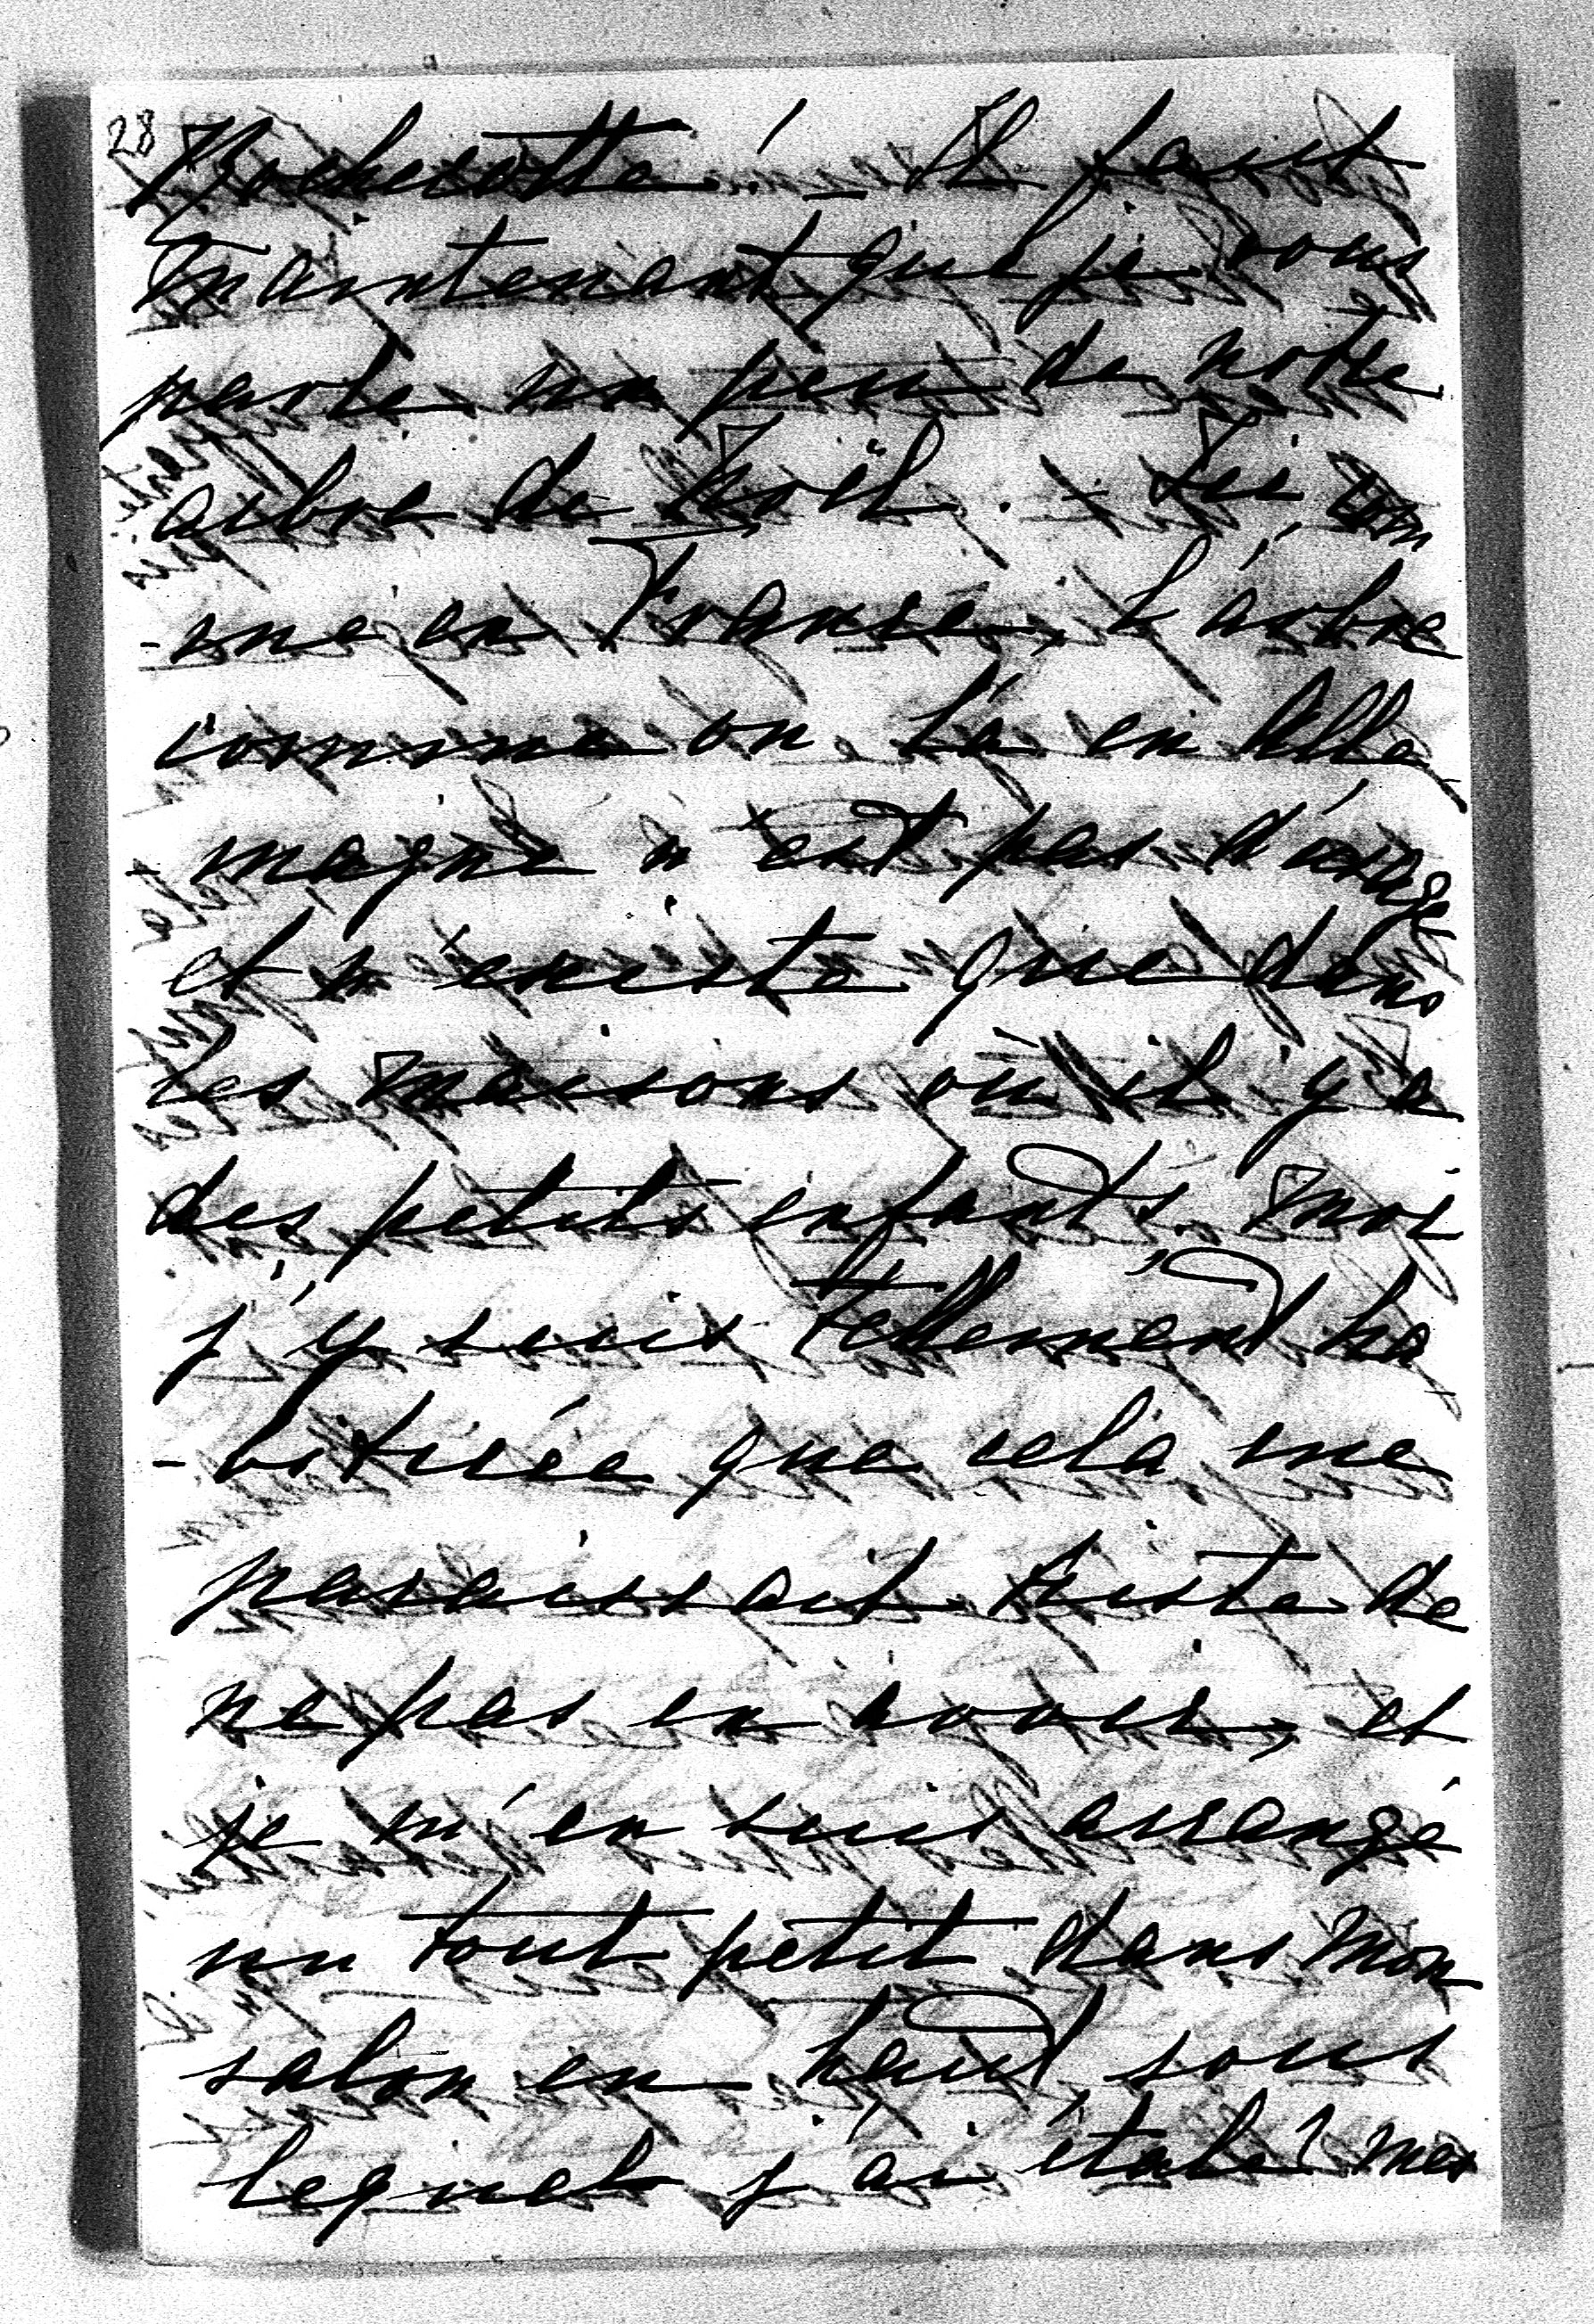 28
Rochecotte! — Il faut
maintenant que je vous
parle un peu de notre
arbre de Noël. - Ici, com
-me en France, l'arbre
comme on l'a en Alle
-magne n'est pas d'usage
et n'existe que dans
les maisons où il y a
des petits enfants. Moi
j'y suis tellement ha
-bituée que cela me
paraissait triste de
ne pas en avoir, et
je m'en suis arrangé
un tout petit dans mon
salon en haut sous
lequel j'ai étalé mes